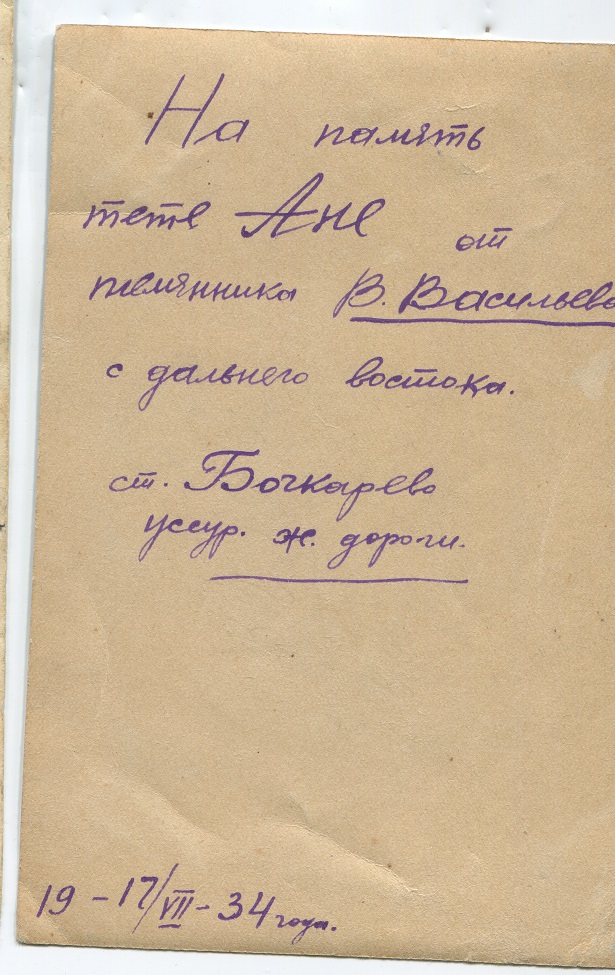 На память
тете Ане от
племянника В. Васильева
с дальнего востока.
ст. Бочкарево
уссур. ж. дороги.
19 - 17/VII - 34 года.